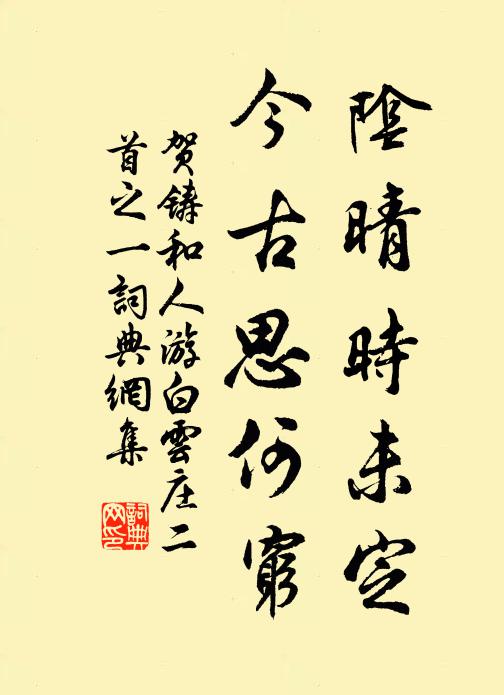 陰晴時未定
今古思何窮
贺鑄和人游白雲庄二
首之一詞典網集
詞典
网印